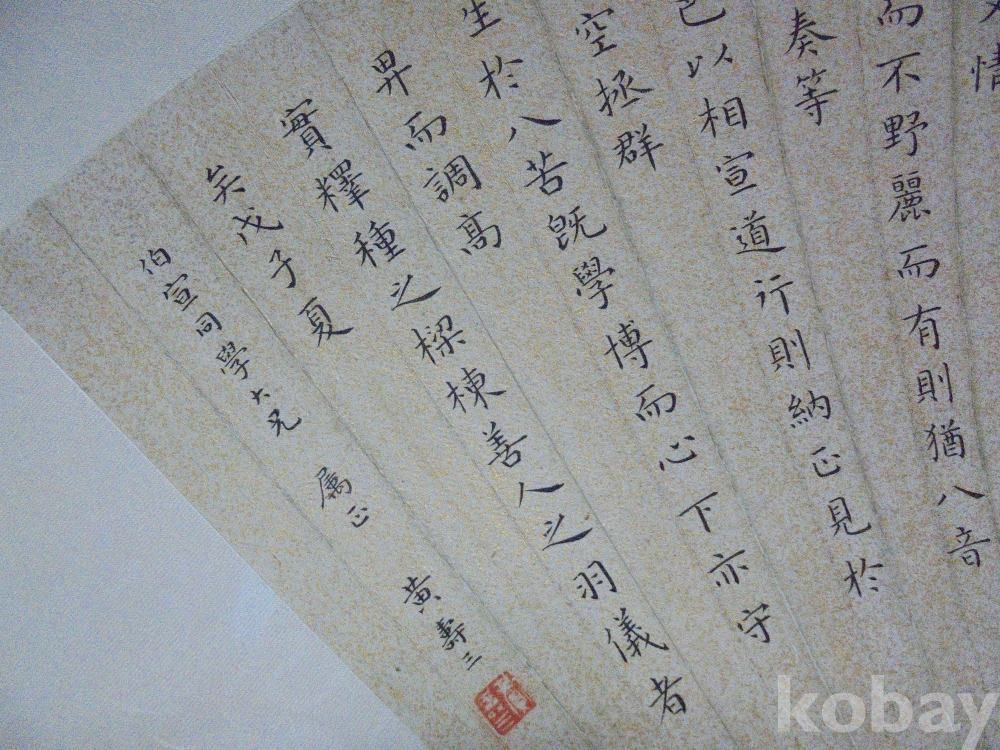 情
而不野麗而有則猶八音
奏等
已以相宣道行則納正見於
空拯群
生於八苦既學博而心下亦守
卑而調高
實釋種之樑棟善人之羽儀者
矣戊子夏
伯宣同學大兄 属正
黃壽三
kobay